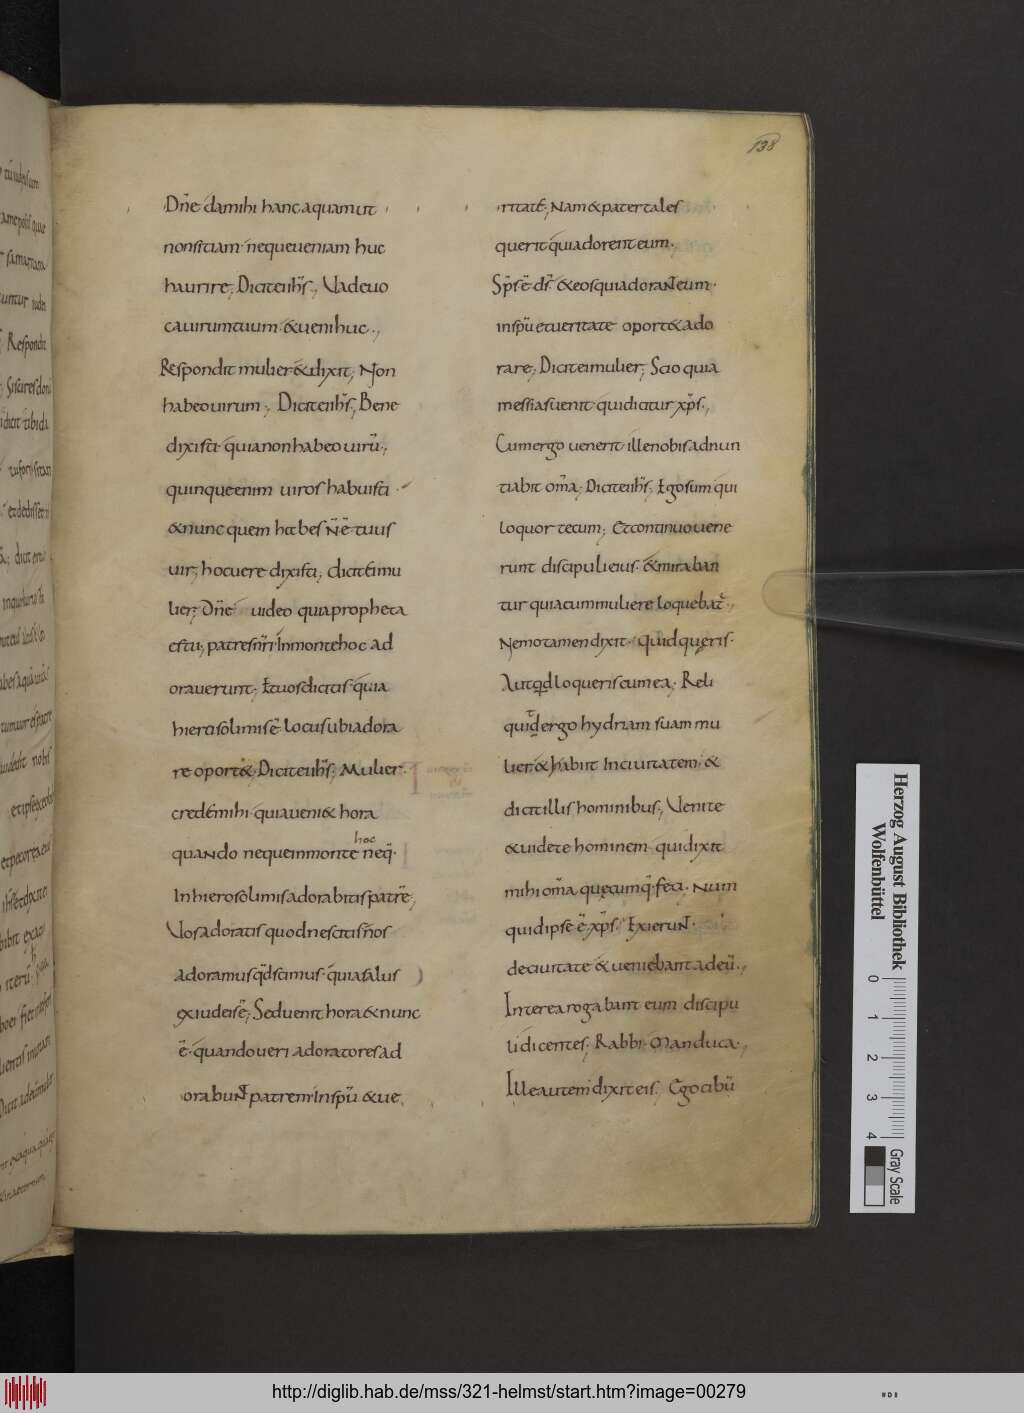 138
Dn̄e da mihi hanc aquam ut
non sitiam neque ueniam huc
haurire; Dicit ei ih̄s; Vade uo
ca uirum tuum & ueni huc;
Respondit mulier & dixit; Non
habeo uirum; Dicit ei ih̄s; Bene
dixisti quia non habeo uirū;
quinque enim uiros habuisti
& nunc quem habes n̄ ē tuus
uir; hoc uere dixisti; dicit ei mu
lier; Dn̄e uideo quia propheta
es tu; patres nr̄i in monte hoc ad
orauerunt; Et uos dicitis quia
hierosolimis ē locus ubi adora
re oport&; Dicit ei ih̄s; Mulier
crede mihi quia ueni& hora
quando neque in monte hoc neq;
In hierosolimis adorabitis patrē;
Vos adoratis quod nescitis nos
adoramus qd̄ scimus quia salus
ex iudeis ē; Sed uenit hora & nunc
ē quando ueri adoratores ad
orabunt patrem in sp̄u & ue
ritatē; Nam & pater tales
querit qui adorent eum;
Sp̄s ē ds̄ & eos qui adorant eum
in sp̄u et ueritate oport& ado
rare; Dicit ei mulier; Scio quia
messias uenit qui dicitur xp̄s;
Cum ergo uenerit ille nobis adnun
tiabit om̄a; Dicit ei ih̄s; Ego sum qui
loquor tecum; Et continuo uene
runt discipuli eius & miraban
tur quia cum muliere loquebat̄;
Nemo tamen dixit quid queris
Aut qd loqueris cum ea; Reli
quid ergo hydriam suam mu
lier & habiit In ciuitatem &
dicit illis hominibus; Venite
& uidete hominem qui dixit
mihi om̄a quecumq; feci. Num
quid ipse ē xp̄s; Exierunt
de ciuitate & ueniebant ad eū;
Interea rogabant eum discipu
li dicentes; Rabbi Manduca;
Ille autem dixit eis; Ego cibū
Herzog August Bibliothek
Wolfenbüttel
0 1 2 3 4
Gray Scale
http://diglib.hab.de/mss/321-helmst/start.htm?image=00279